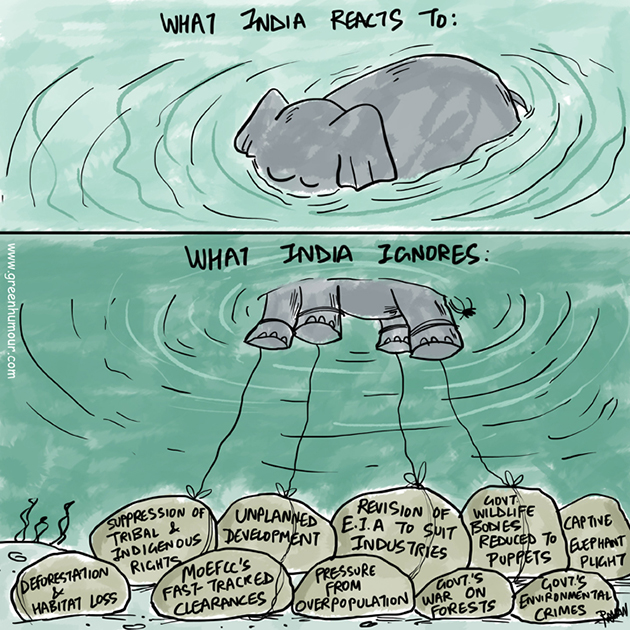 WHAT INDIA REACTS TO:
WHAT INDIA IGNORES:
www.greenhumour.com
SUPPRESSION OF
TRIBAL &
INDIGENOUS
RIGHTS
UNPLANNED
DEVELOPMENT
REVISION OF
E.I.A TO SUIT
INDUSTRIES
GOVT
WILDLIFE
BODIES
REDUCED TO
PUPPETS
CAPTIVE
ELEPHANT
PLIGHT
DEFORESTATION
& HABITAT LOSS
MOEFCC'S
FAST-TRACKED
CLEARANCES
PRESSURE
FROM
OVERPOPULATION
GOVT.'S
WAR ON
FORESTS
GOVT.'S
ENVIRONMENTAL
CRIMES